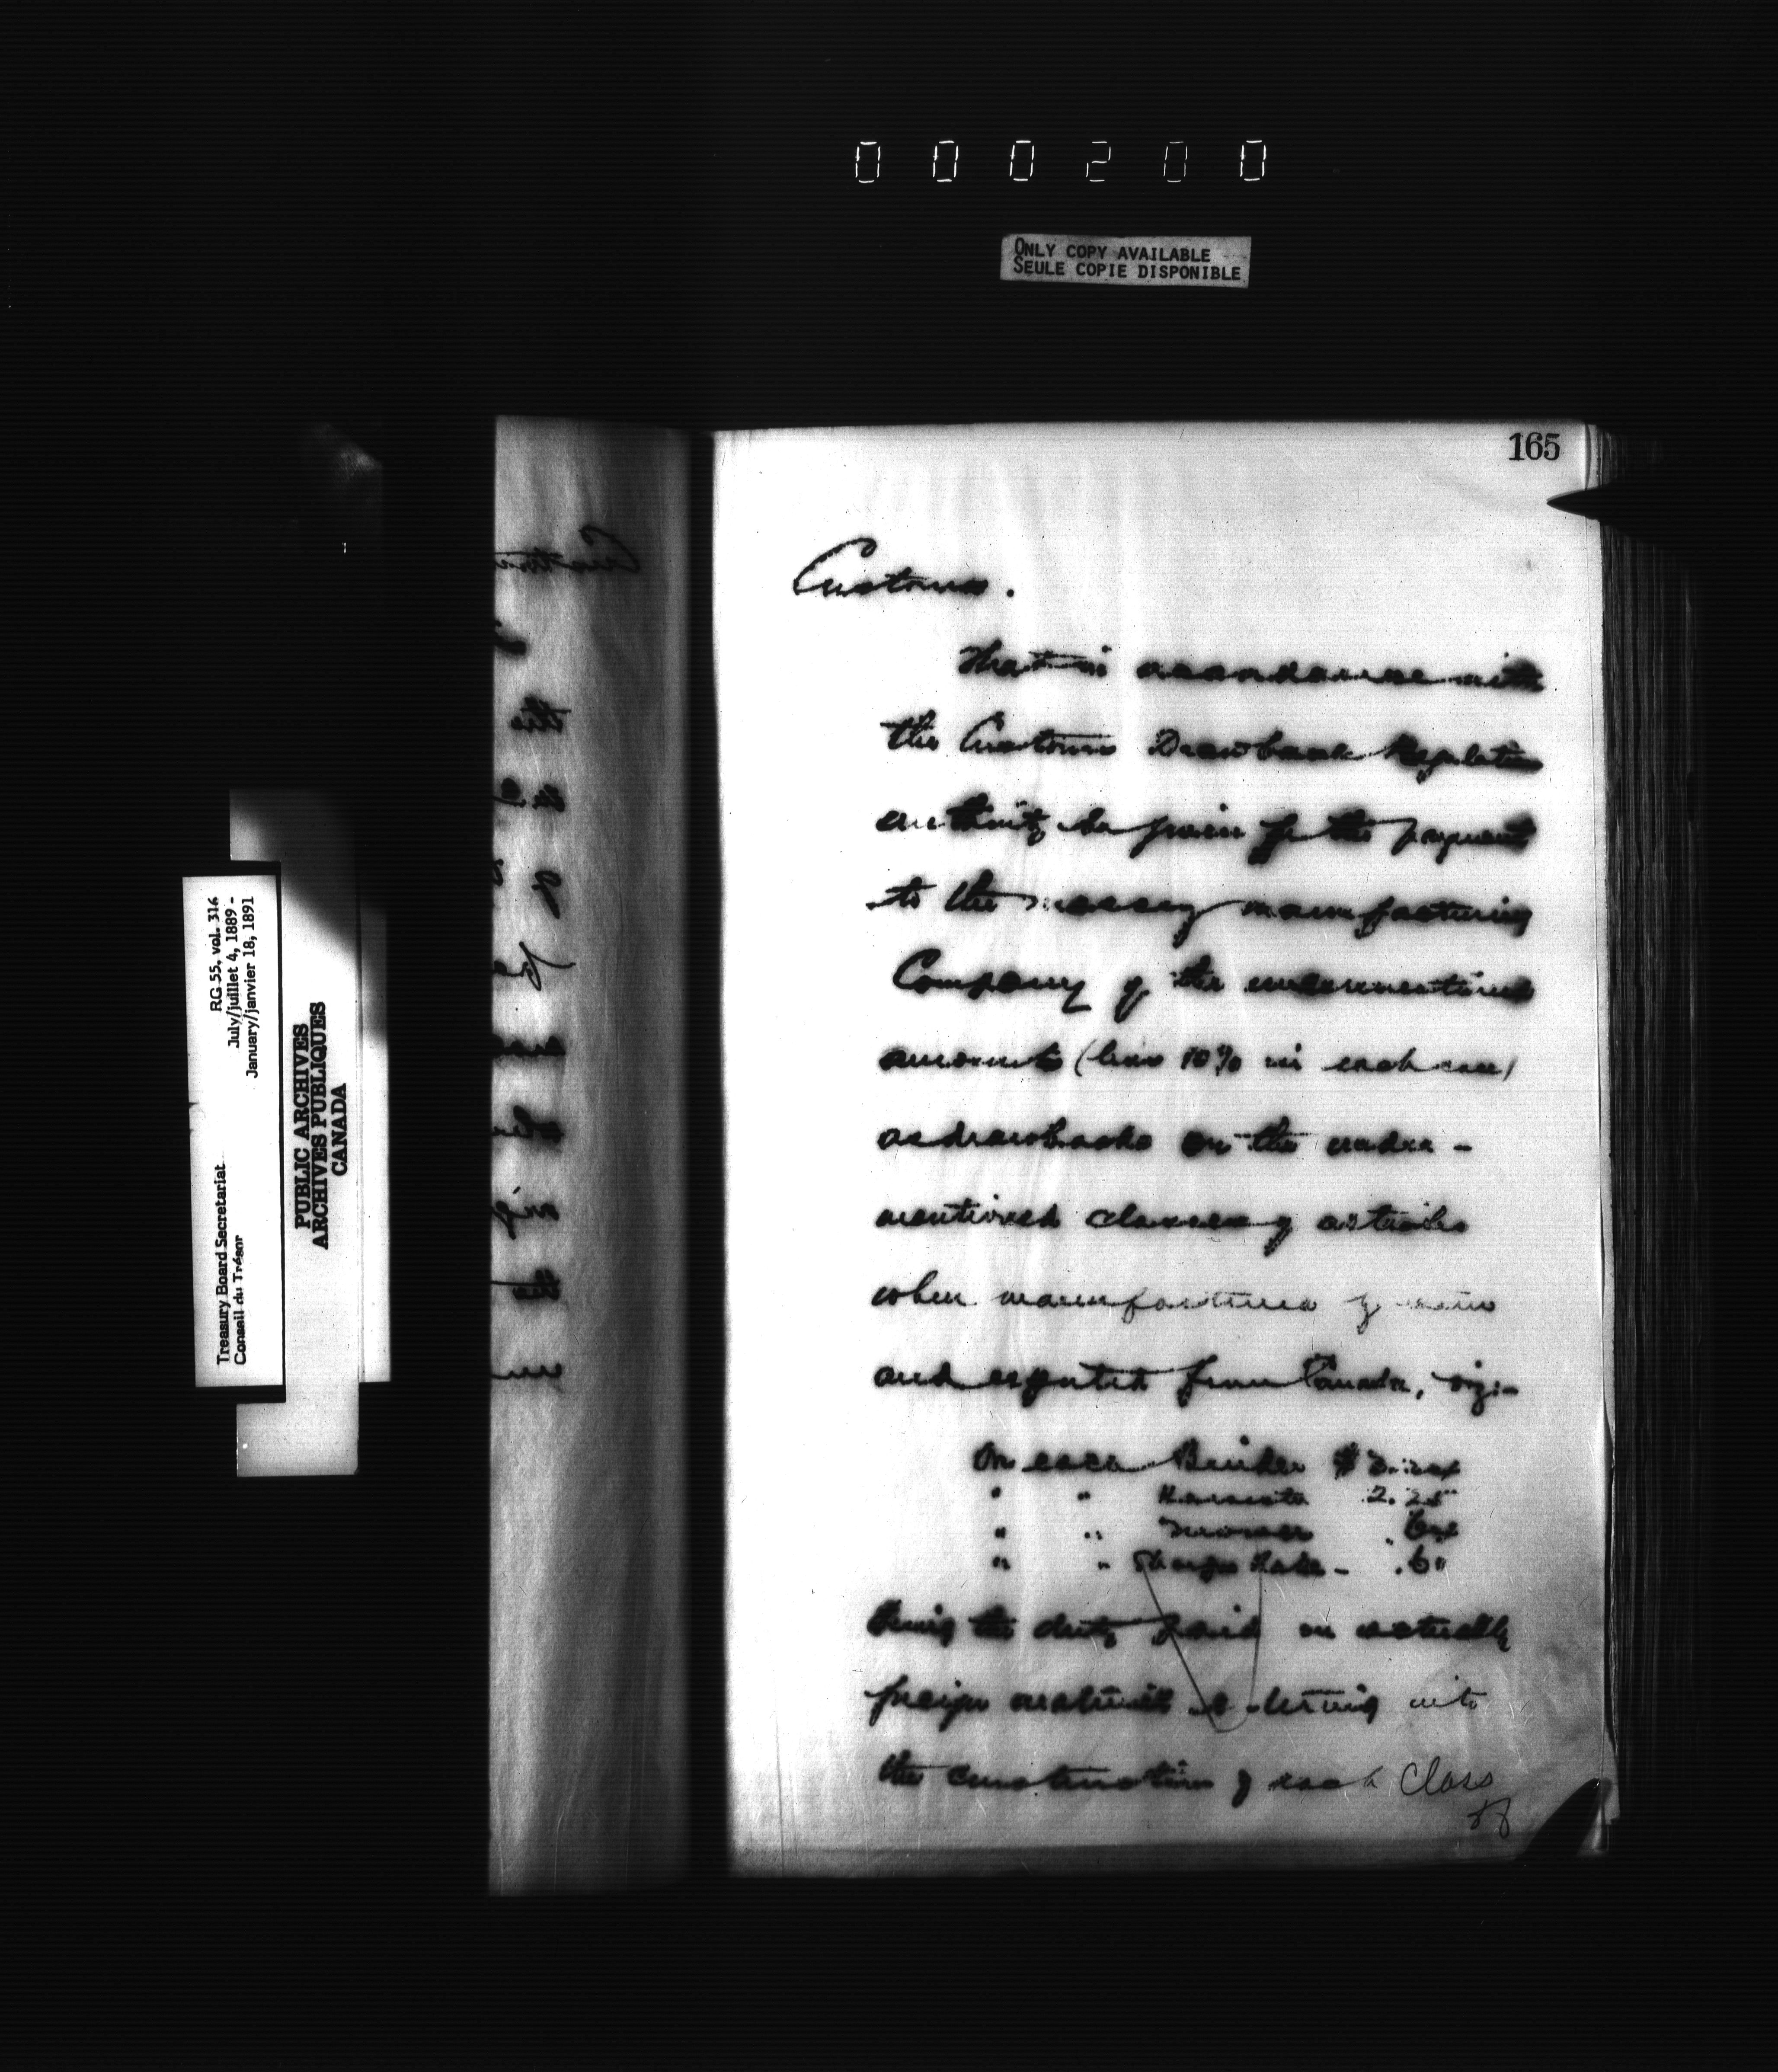 000200
ONLY COPY AVAILABLE
SEULE COPIE DISPONIBLE
RG 55, vol. 316
July/juillet 4, 1889 -
January/janvier 18, 1891
Treasury Board Secretariat
Conseil du Trésor
PUBLIC ARCHIVES
ARCHIVES PUBLIQUES
CANADA
165
Customs.
That in accordance with
the Customs Drawback Regulations
authority be given for the payment
to the Massey Manufacturing
Company of the undermentioned
amounts (less 10% in each case)
as drawbacks on the under -
mentioned classes of articles
when manufactured by
and exported from Canada, viz:-
On each Binder $
" " 2.25
" " Mower
" " Sharps Rake -
being the duty paid on
foreign material entering into
the construction of each Class